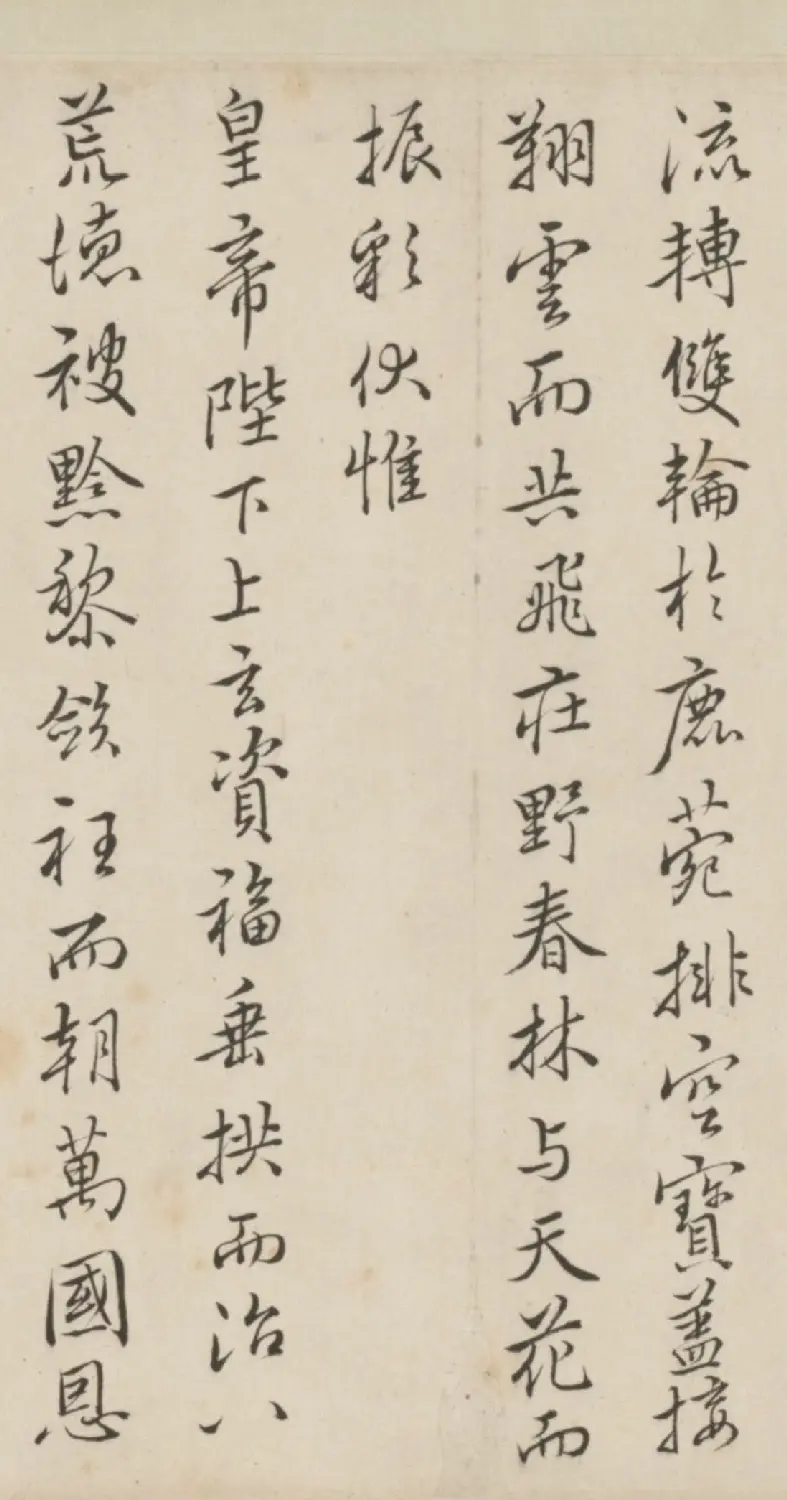 流轉雙輪於鹿菀排空寶蓋接
翔雲而共飛庄野春林与天花而
振彩伏惟
皇帝陛下上玄資福垂拱而治八
荒德被黔黎斂衽而朝萬國恩